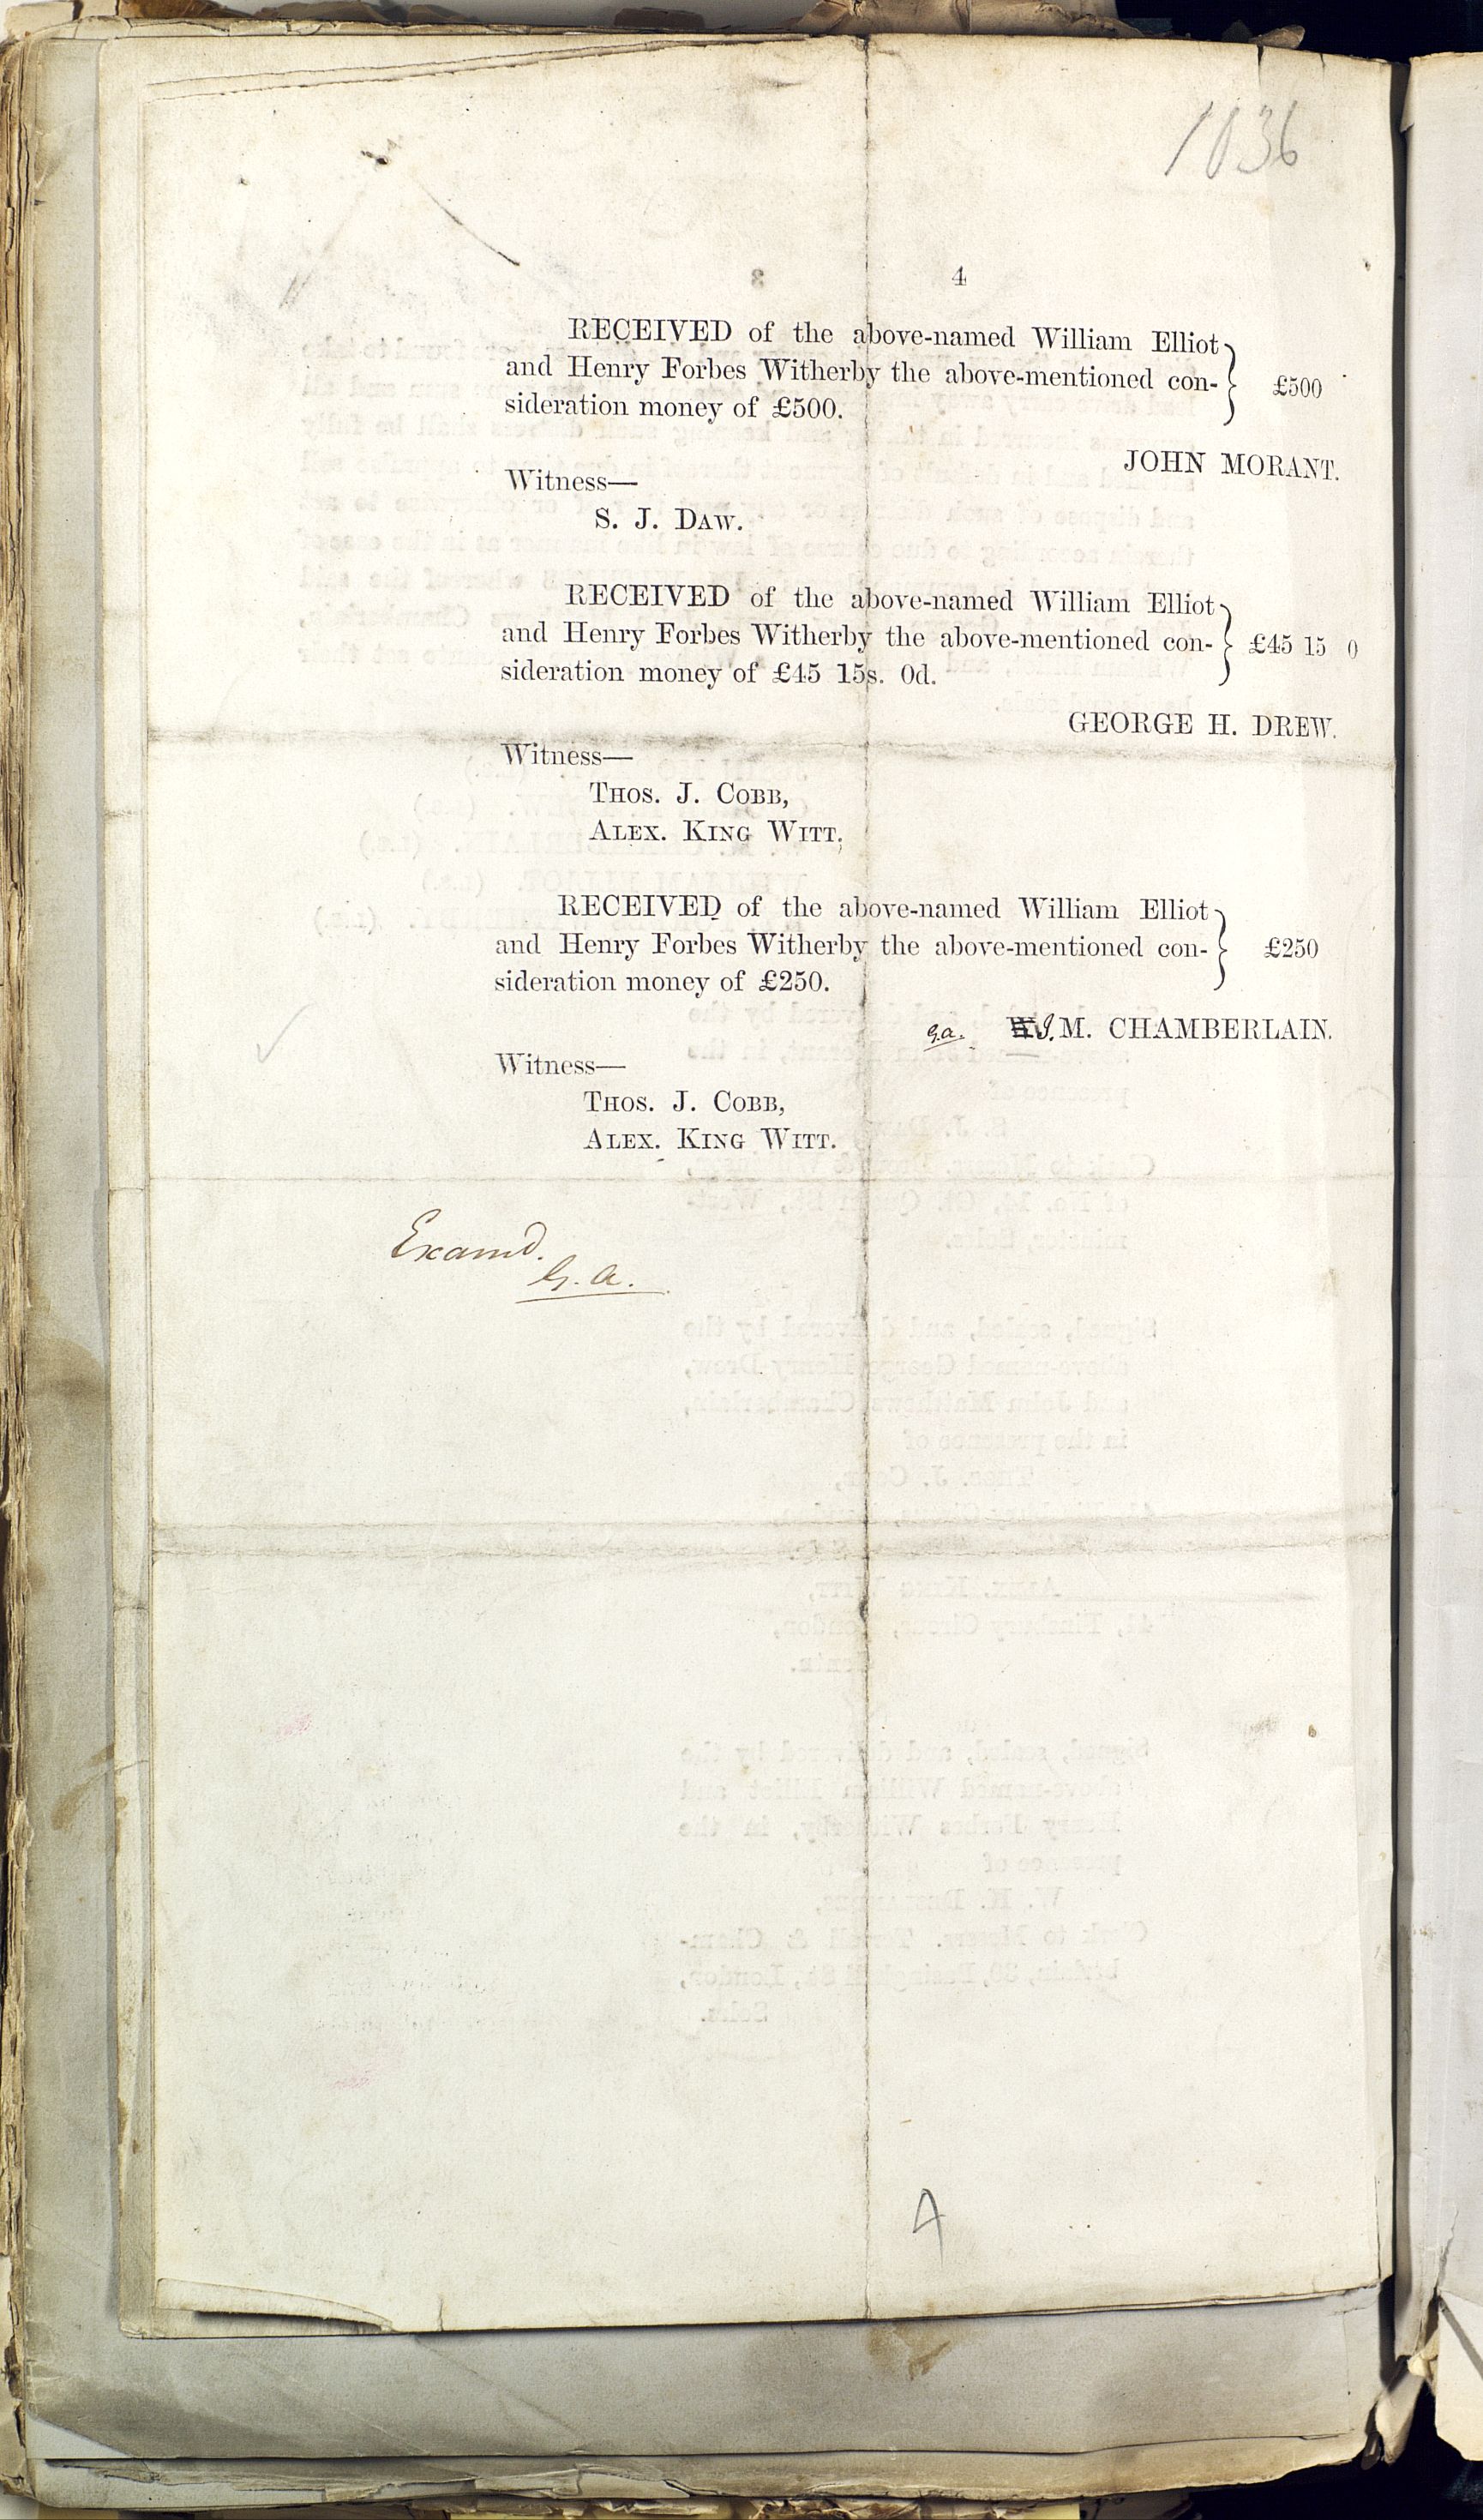 1036
4
RECEIVED of the above-named William Elliot
and Henry Forbes Witherby the above-mentioned con-
sideration money of £500.
£500
JOHN MORANT.
Witness—
S. J. DAW.
RECEIVED of the above-named William Elliot
and Henry Forbes Witherby the above-mentioned con-
sideration money of £45 15s. 0d.
£45 15 0
GEORGE H. DREW.
Witness—
THOS. J. COBB,
ALEX. KING WITT.
RECEIVED of the above-named William Elliot
and Henry Forbes Witherby the above-mentioned con-
sideration money of £250.
£250
G.a. J. M. CHAMBERLAIN.
Witness—
THOS. J. COBB,
ALEX. KING WITT.
Examd.
G. a.